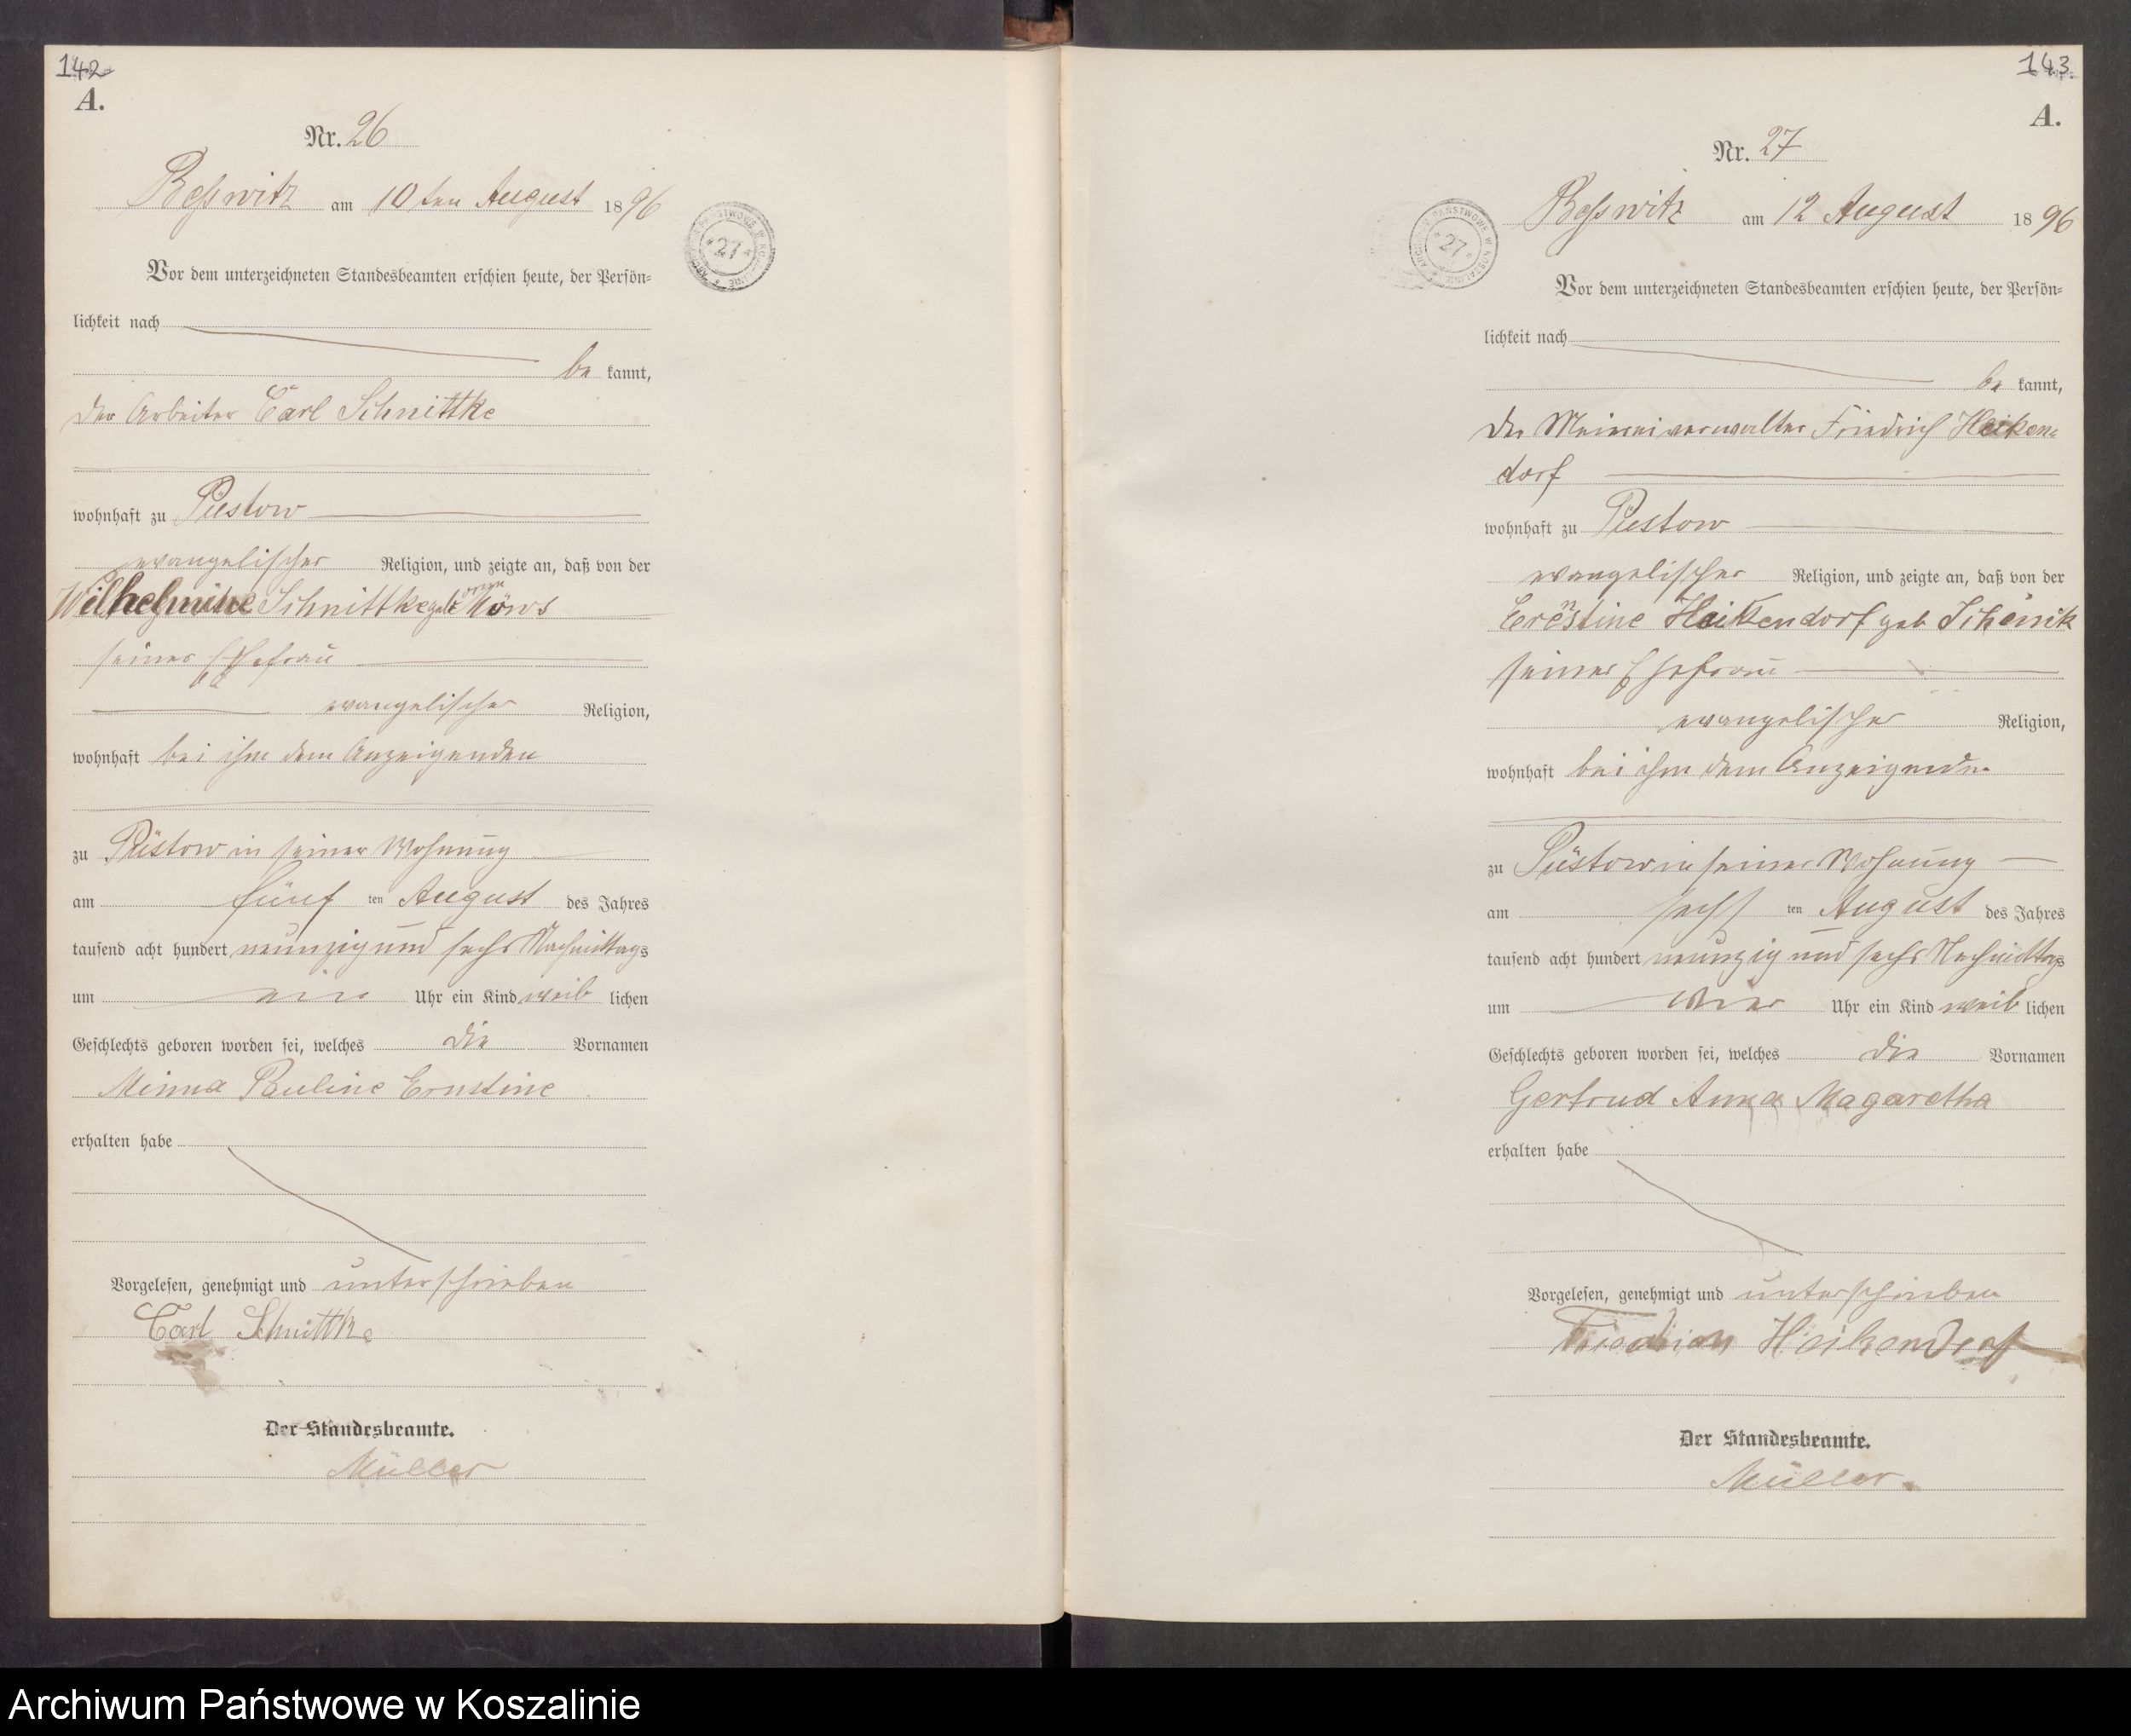 142
A.
Nr. 26
Beßwitz am 10ten August 1896
ARCHIWUM PAŃSTWOWE W KOSZALINIE * 27 *
Vor dem unterzeichneten Standesbeamten erschien heute, der Persön=
lichkeit nach
be kannt,
der Arbeiter Carl Schnittke
wohnhaft zu Püstow
evangelischer Religion, und zeigte an, daß von der
Wilhelmine Schnittke geborenen
seiner Ehefrau
evangelischer Religion,
wohnhaft bei ihm dem Anzeigenden
zu Püstow in seiner Wohnung
am fünf ten August des Jahres
tausend acht hundert neunzig und sechs Nachmittags
um ein Uhr ein Kind weib lichen
Geschlechts geboren worden sei, welches die Vornamen
Minna Pauline Ernstine
erhalten habe
Vorgelesen, genehmigt und unterschrieben
Carl Schnittke
Der Standesbeamte.
Müller
143
A.
Nr. 27
Beßwitz am 12 August 1896
ARCHIWUM PAŃSTWOWE W KOSZALINIE * 27 *
Vor dem unterzeichneten Standesbeamten erschien heute, der Persön=
lichkeit nach
be kannt,
der Meiereiverwalter Friedrich Heiken=
dorf
wohnhaft zu Püstow
evangelischer Religion, und zeigte an, daß von der
Ernestine Heikendorf geb
seiner Ehefrau
evangelischer Religion,
wohnhaft bei ihm dem Anzeigenden
zu Püstow in seiner Wohnung
am sechs ten August des Jahres
tausend acht hundert neunzig und sechs Nachmittags
um vier Uhr ein Kind weib lichen
Geschlechts geboren worden sei, welches die Vornamen
Gertrud Anna Magaretha
erhalten habe
Vorgelesen, genehmigt und unterschrieben
Friedrich Heikendorf
Der Standesbeamte.
Müller.
Archiwum Państwowe w Koszalinie